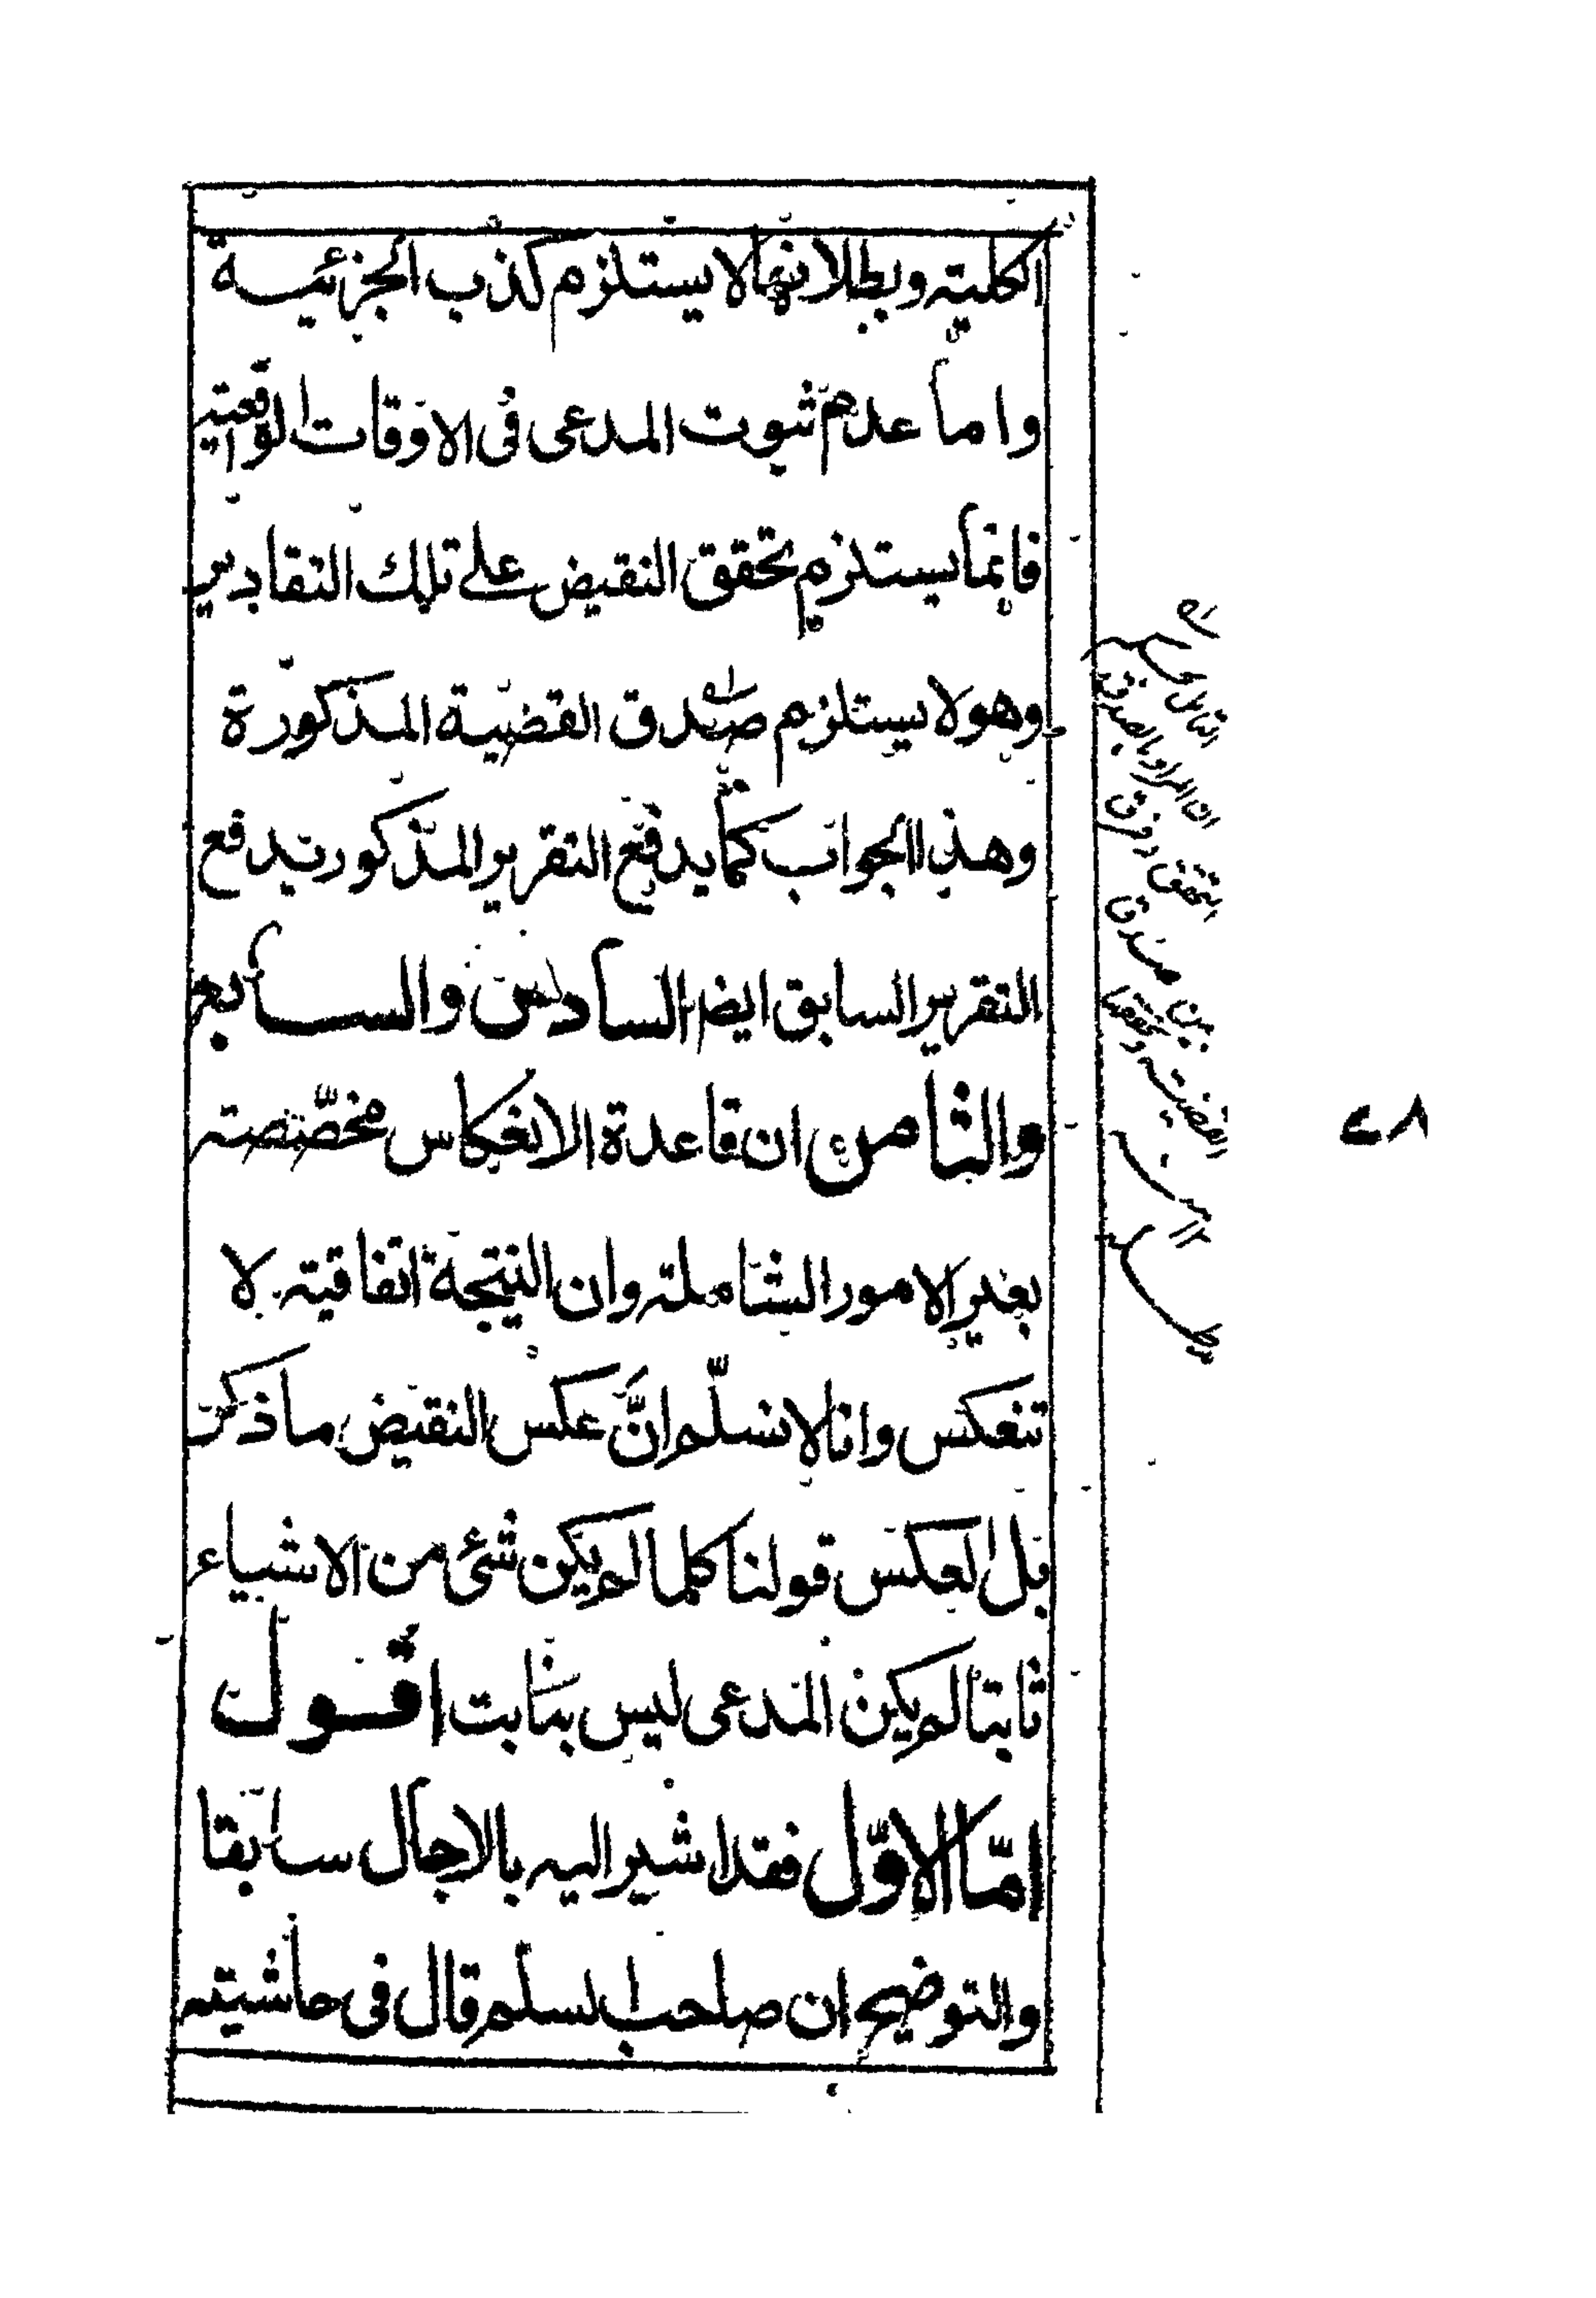 الكلية وبطلانها لا يستلزم كذب الجزئية
واما عدم ثبوت المدعى فى الاوقات الواقعية
فانما يستلزم تحقق النقيض على تلك التقادير
وهو لا يستلزم صدق القضية المذكورة
وهذا الجواب كما يدفع التقرير المذكور يدفع
التقرير السابق ايضا السادس والسابع
والثامن ان قاعدة الانعكاس مخصصة
بغير الامور الشاملة وان النتيجة اتفاقية لا
تنعكس وانا لا نسلّم انّ عكس النقيض ما ذكرت
بل العكس قولنا كلما لم يكن شئ من الاشياء
ثابتا لم يكن المدعى ليس بثابت اقول
امّا الاوّل فقد اشير اليه بالاجمال سابقا
والتوضيح ان صاحب السلم قال فى حاشيته
ان المراد بالصدق
التحقق وفرق
بين صدق
القضية وتحققها
٢٨